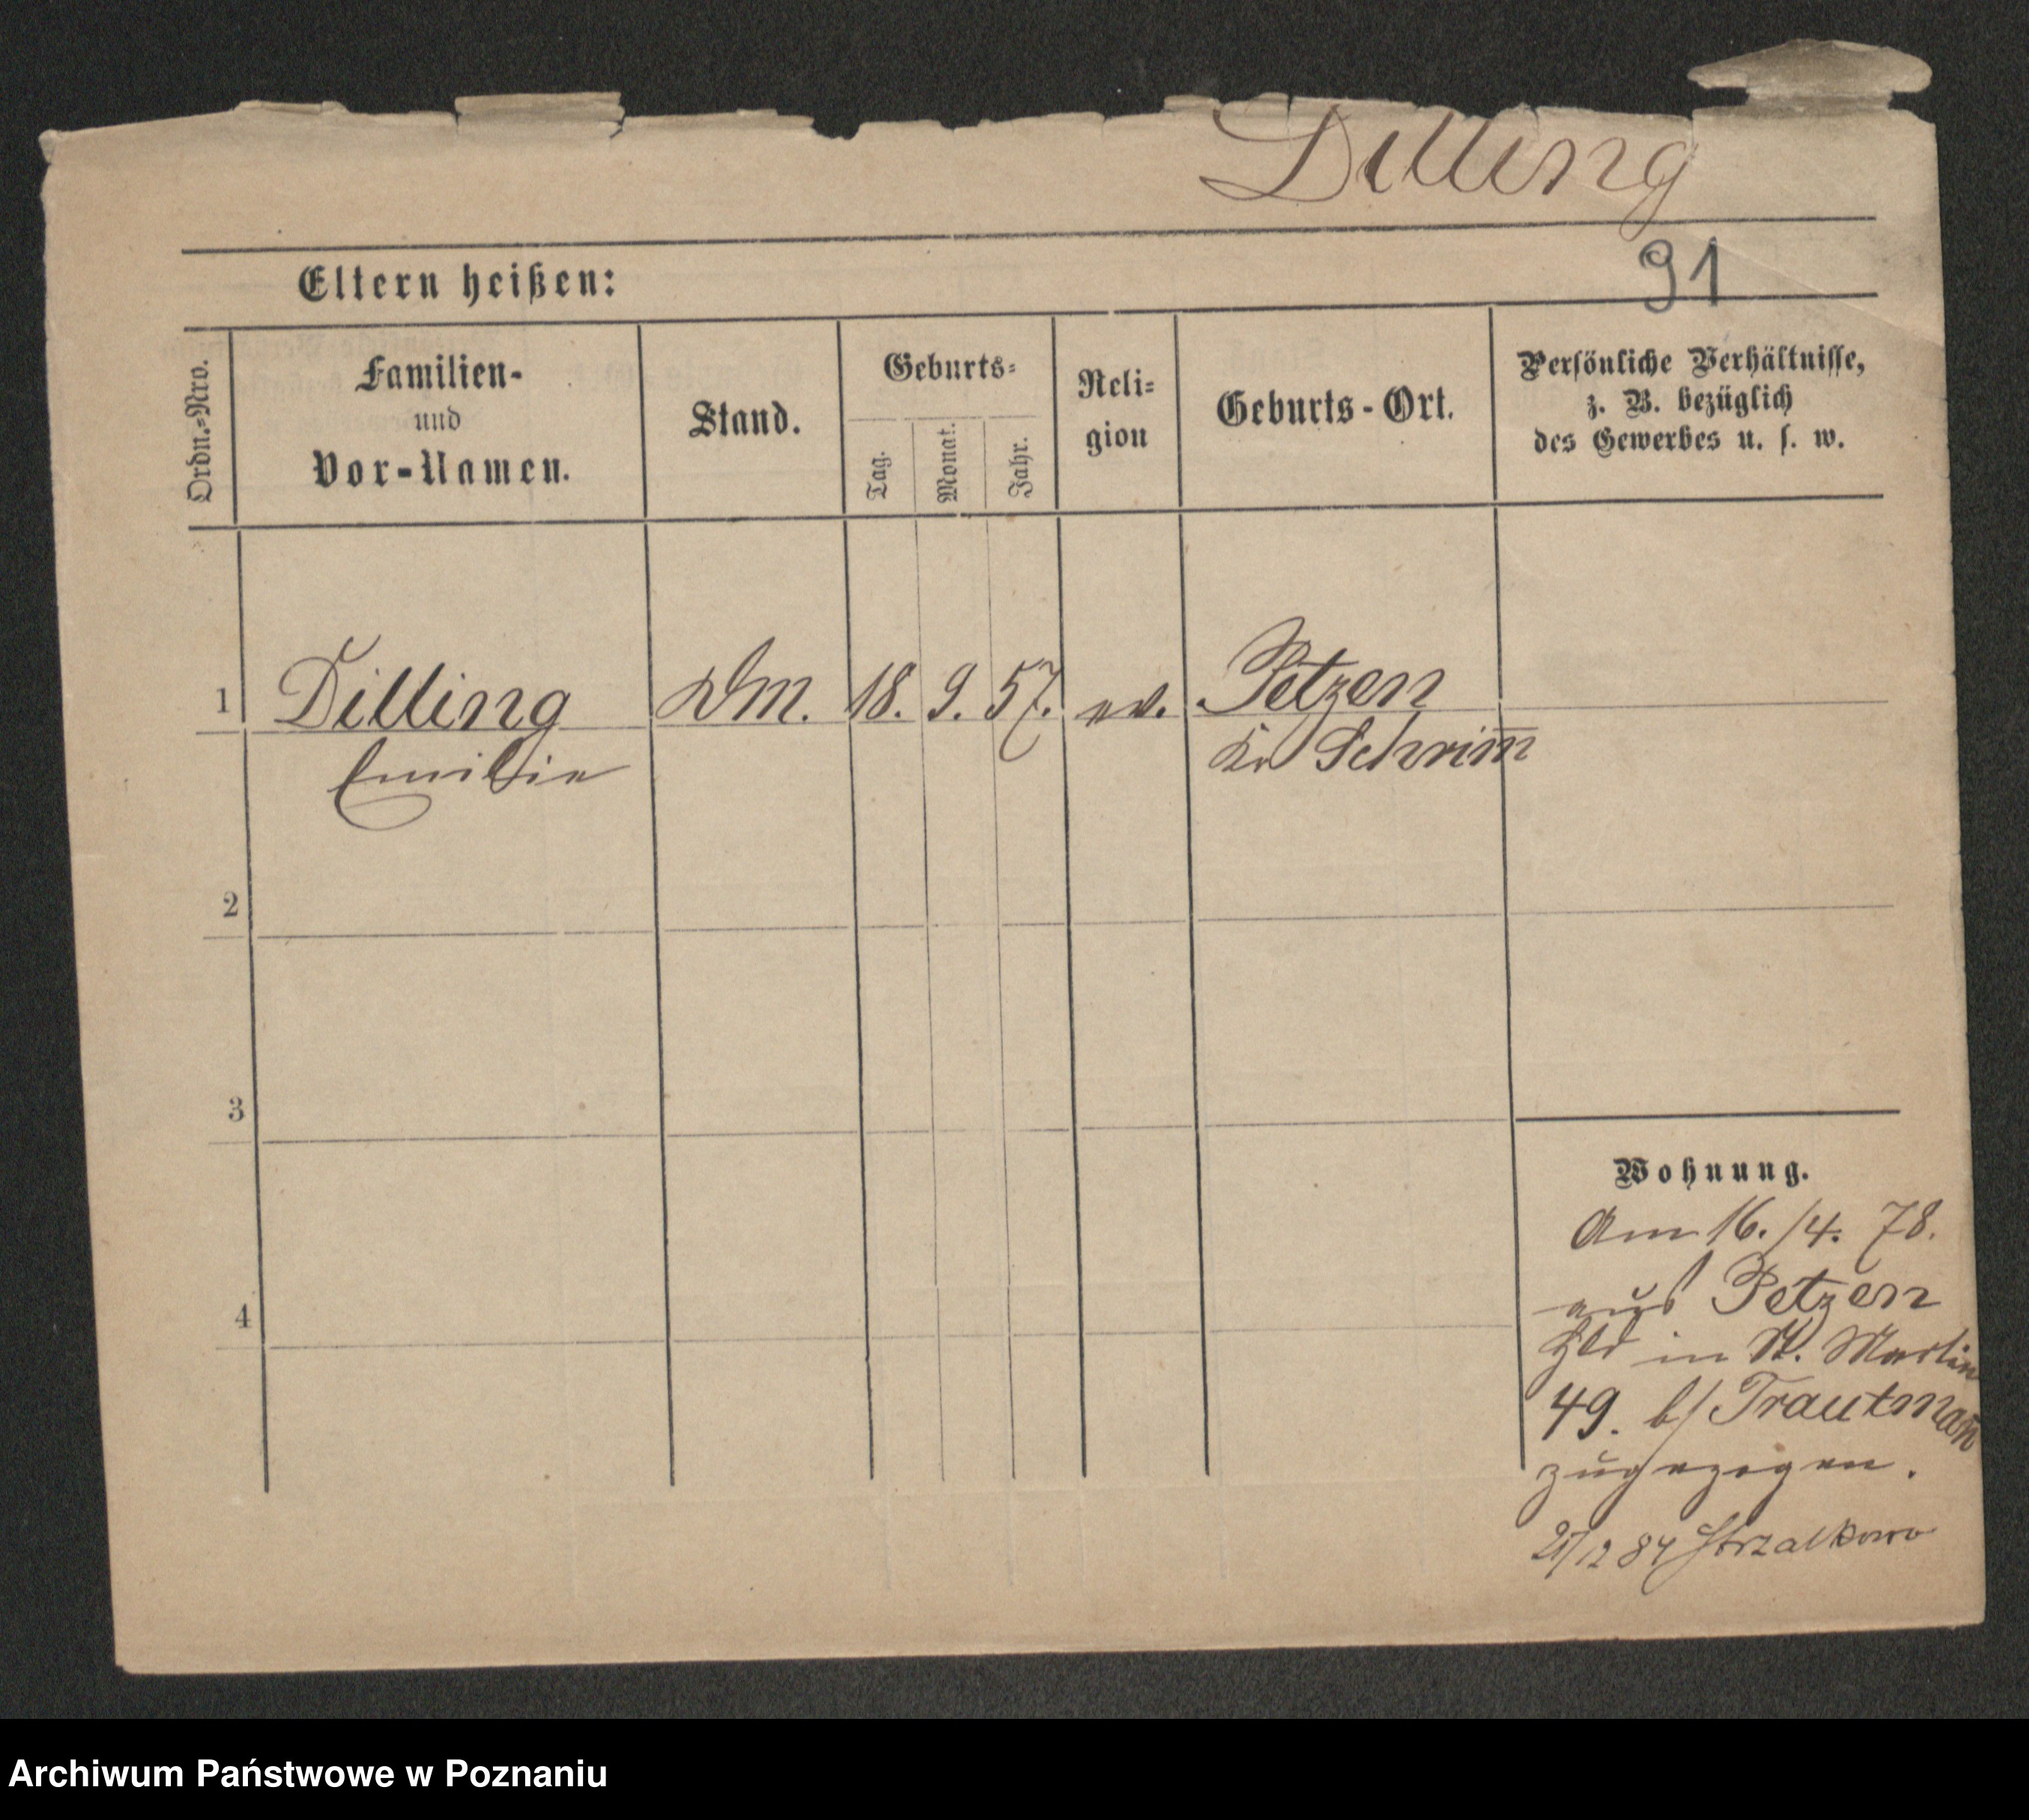 Dilling
91
Eltern heißen:
Ordn.-Nro.
Familien-
und
Vor-Namen.
Stand.
Geburts-
Tag.
Monat.
Jahr.
Reli-
gion
Geburts-Ort.
Persönliche Verhältnisse,
z. B. bezüglich
des Gewerbes u. s. w.
1 Dilling DM. 18. 9. 57. ev. Petzen
Emilie Kr Schrim̅
2
3
4
Wohnung.
Am 16./4. 78.
aus Petzen
in St. Martin
49. b/ Trautman̅
zugezogen.
12 84 Strzalkowo
Archiwum Państwowe w Poznaniu